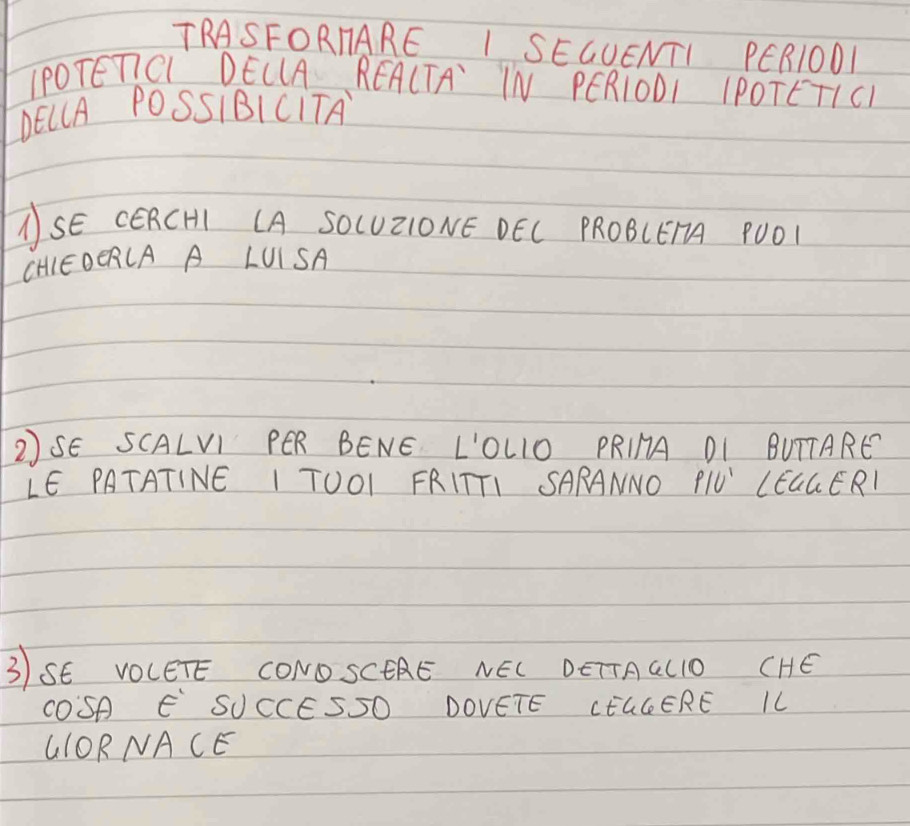 TRASFORMARE I SEGUENTI PERIODI
IPOTETICI DELLA REALTA' IN PERIODI IPOTETICI
DELLA POSSIBILITA'
1) SE CERCHI LA SOLUZIONE DEL PROBLEMA PUOI
CHIEDERLA A LUISA
2) SE SCALVI PER BENE L'OLIO PRIMA DI BUTTARE
LE PATATINE I TUOI FRITTI SARANNO PIU' LEGGERI
3) SE VOLETE CONOSCERE NEL DETTAGLIO CHE
COSA E' SUCCESSO DOVETE LEGGERE IL
GIORNALE